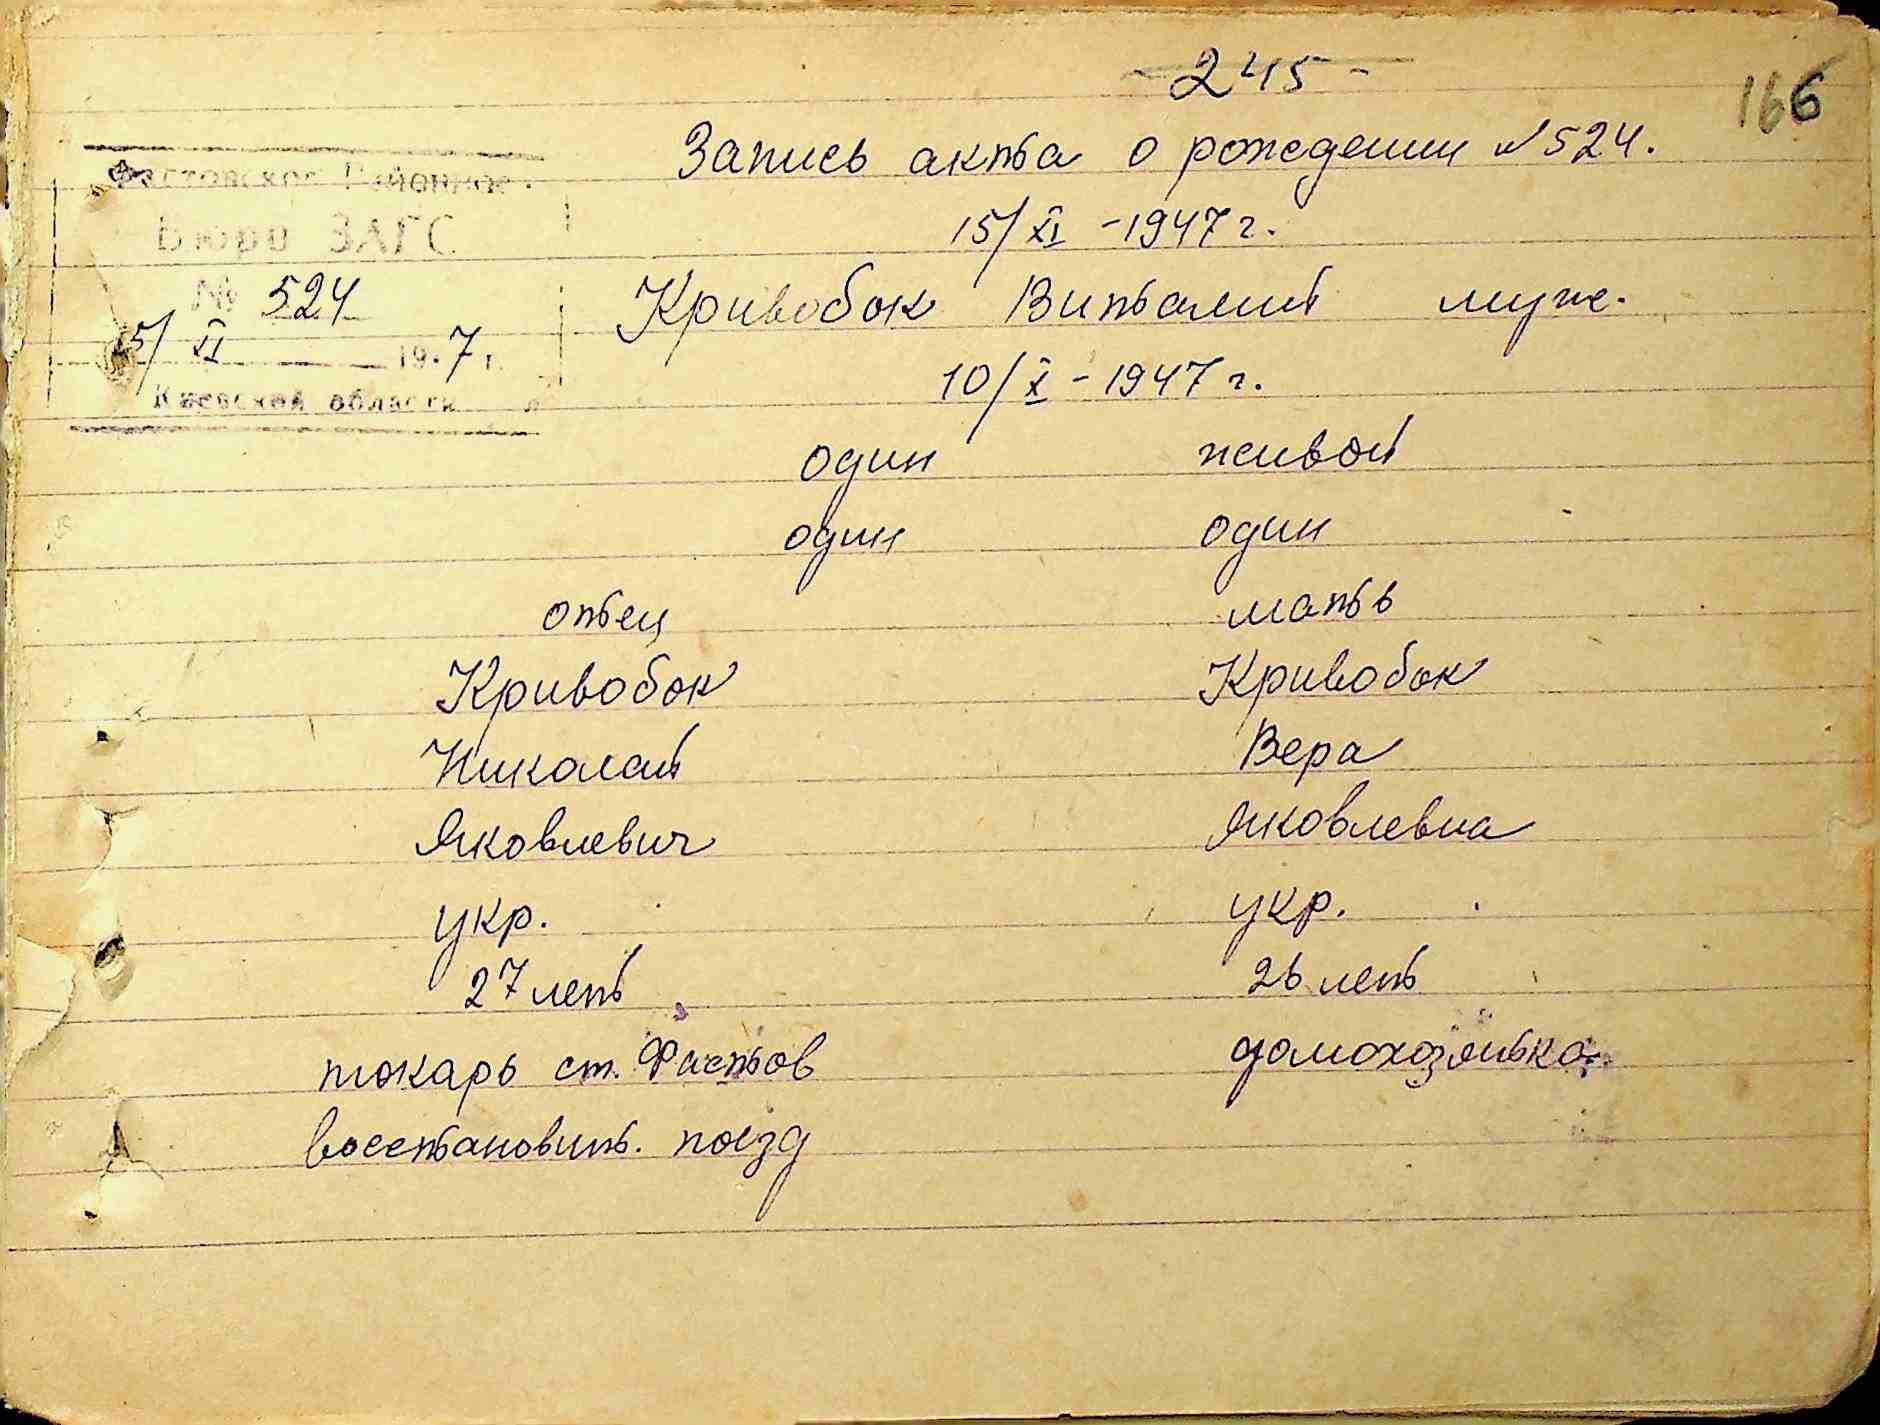 - 245 -
166
Запись акта о рождении №524.
15/XI -1947 г.
Фастовское Районное
Бюро ЗАГС
№ 524
15/XI 19 7 г.
Киевской области
Кривобок Виталий муж.
10/X - 1947 г.
один живой
один один
отец мать
Кривобок Кривобок
Николай Вера
Яковлевич Яковлевна
укр. укр.
27 лет 26 лет
токарь ст. Фастов домохозяйка.
восстановит. поезд